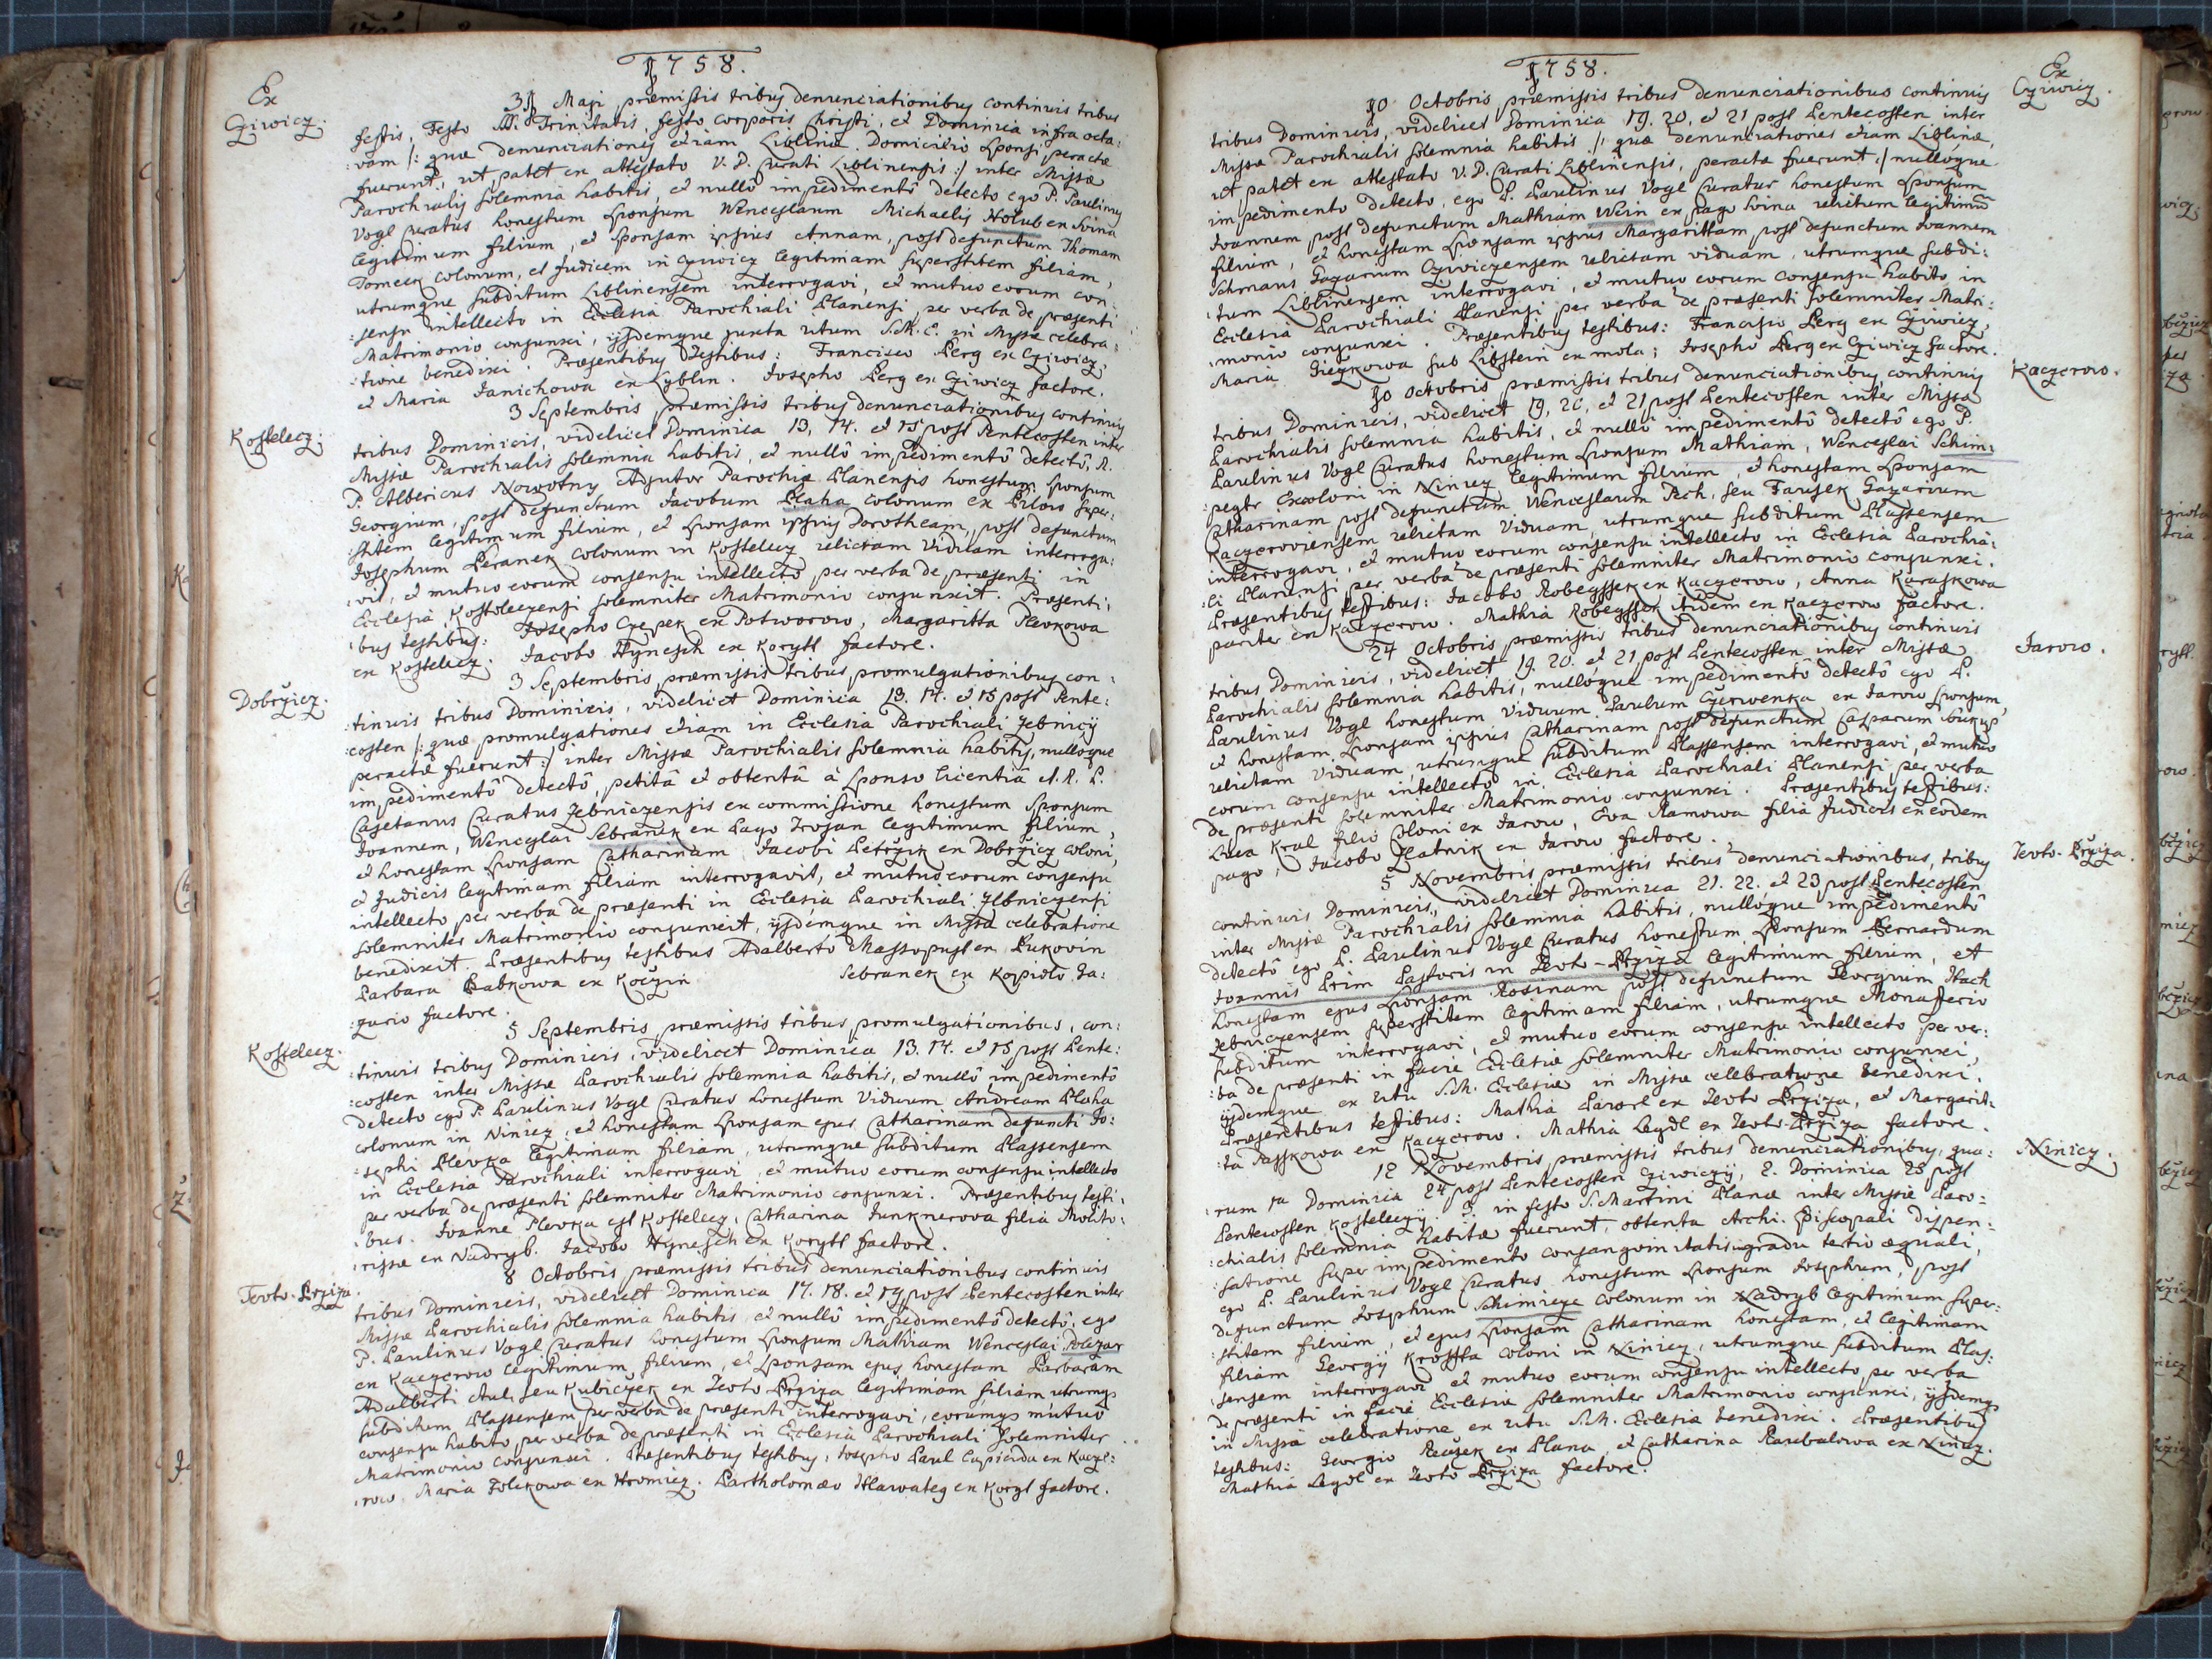 1758.
Ex
Cziwicz.
31 Maji præmissis tribus denunciationibus continuis tribus
festis, Festo SS. Trinitatis, festo corporis Christi, et Dominica infra octa:
:vam /: quæ denunciationes etiam Liblinæ Domicilio Sponsi peractæ
fuerunt, ut patet ex attestato V. D. Curati Liblinensis :/ inter Missæ
Parochialis solemnia habitis, et nullô impedimentô detecto ego P. Paulinus
Vogl Curatus honestum Sponsum Wenceslaum Michaelis Holub ex Svina
legitimum filium, et Sponsam ipsius Annam, post defunctum Thomam
Tomcek Colonum, et Judicem in Cziwicz legitimam superstitem filiam,
utrumque subditum Liblinensem interrogavi, et mutuo eorum con:
:sensu intellecto in Ecclesia Parochiali Planensi per verba de præsenti
Matrimonio conjunxi, ijsdemque juxta ritum S.M.E. in Missæ celebra:
:tione benedixi. Præsentibus Testibus: Francisco Berg ex Cziwicz,
et Maria Janichowa ex Lyblin. Josepho Berg ex Cziwicz factore.
Kostelecz.
3 Septembris præmissis tribus denunciationibus continuis
tribus Dominicis, videlicet Dominica 13, 14. et 15 post Pentecosten inter
Missæ Parochialis solemnia habitis, et nullô impedimentô detectô, R.
P. Albericus Nowotny Adjutor Parochiæ Planensis honestum Sponsum
Georgium, post defunctum Jacobum Blaha colonum ex Bilow super:
:stitem legitimum filium, et Sponsam ipsius Dorotheam, post defunctum
Josephum Beranek Colonum in Kostelecz relictam Viduam interroga:
:vit, et mutuo eorum consensu intellectô per verba de præsenti in
Ecclesia Kosteleczensi solemniter Matrimonio conjunxit. Præsenti:
:bus testibus: Josepho Czepek ex Potworow, Margaritta Plevkowa
ex Kostelecz. Jacobo Hynesch ex Korytt factore.
Dobrzicz.
3 Septembris, præmissis tribus promulgationibus con:
:tinuis tribus Dominicis, videlicet Dominica 13. 14. et 15 post Pente:
:costen /: quæ promulgationes etiam in Ecclesia Parochiali Zebnicij
peractæ fuerunt :/ inter Missæ Parochialis solemnia habitis, nulloque
impedimentô detectô, petitâ et obtentâ à Sponso licentiâ A. R. P.
Cajetanus Curatus Zebniczensis ex commissione honestum Sponsum
Joannem, Wenceslai Sebranek ex Pago Trojan legitimum filium,
et honestam Sponsam Catharinam Jacobi Petrzik ex Dobrzicz coloni,
et Judicis legitimam filiam interrogavit, et mutuo eorum consensu
intellecto per verba de præsenti in Ecclesia Parochiali Zebniczensi
solemniter Matrimonio conjunxit, ijsdemque in Missæ celebratione
benedixit. Præsentibus testibus Adalberto Massopust ex Bukovin
Barbara Babkowa ex Koczin Sebranek ex Kopidlo Ga:
:zario factore.
Kostelecz.
5 Septembris præmissis tribus promulgationibus, con:
:tinuis tribus Dominicis, videlicet Dominica 13. 14. et 15 post Pente:
:costen inter Missæ Parochialis solemnia habitis, et nullô impedimentô
detecto ego P. Paulinus Vogl Curatus honestum Viduum Andream Blaha
colonum in Ninicz, et honestam Sponsam ejus Catharinam defuncti Jo:
:sephi Plevka legitimam filiam, utrumque subditum Plassensem
in Ecclesia Parochiali interrogavi, et mutuo eorum consensu intellecto
per verba de præsenti solemniter Matrimonio conjunxi. Præsentibus testi:
:bus. Joanne Plevka ex Kostelecz, Catharina Junknerova filia Molito:
:rissæ ex Nadryb. Jacobo Hynesch ex Korytt factore.
Teoto-Brziza.
8 Octobris præmissis tribus denunciationibus continuis
tribus Dominicis, videlicet Dominica 17. 18. et 19 post Pentecosten inter
Missæ Parochialis solemnia habitis, et nullô impedimentô detectô, ego
P. Paulinus Vogl Curatus honestum Sponsum Mathiam Wenceslai
ex Kaczerow legitimum filium, et Sponsam ejus honestam Barbaram
Adalberti Aul, seu Kubiczek ex Teoto Brziza legitimam filiam utrumqs
subditum Plassensem per verba de præsenti interrogavi, eorumqs mutuo
consensu habito per verba de præsenti in Ecclesia Parochiali solemniter
Matrimonio conjunxi. Præsentibus testibus, Josepho Paul Lapicida ex Kacze:
:row, Maria Folikowa ex Hromicz. Bartholomæo Hlawateg ex Koryt factore.
1758.
Ex
Cziwicz.
10 Octobris præmissis tribus denunciationibus continuis
tribus Dominicis, videlicet Dominica 19. 20. et 21 post Pentecosten inter
Missæ Parochialis solemnia habitis /: quæ denunciationes etiam Liblinæ,
ut patet ex attestato V. D. Curati Liblinensis, peractæ fuerunt :/ nulloque
impedimento detecto, ego P. Paulinus Vogl Curatus honestum Sponsum
Joannem post defunctum Mathiam Wein ex pago Svina relictum legitimum
filium, et honestam Sponsam ipsius Margarittam post defunctum Joannem
Schmaus Gazarium Cziwiczensem relictam viduam, utrumque subdi:
:tum Liblinensem interrogavi, et mutuo eorum consensu habito in
Ecclesia Parochiali Planensi per verba de præsenti solemniter Matri:
:monio conjunxi. Præsentibus testibus: Francisco Berg ex Cziwicz,
Maria sub Libstein ex mola; Josepho Berg ex Cziwicz factore.
Kaczerow.
10 Octobris præmissis tribus denunciationibus continuis
tribus Dominicis, videlicet 19, 20, et 21 post Pentecosten inter Missæ
Parochialis solemnia habitis, et nullô impedimentô detectô ego P.
Paulinus Vogl Curatus honestum Sponsum Mathiam, Wenceslai Schim:
:pegtr Excoloni in Ninicz legitimum filium, et honestam Sponsam
Catharinam post defunctum Wenceslaum Pech, seu Farusek Gazarium
Kaczeroviensem relictam Viduam, utrumque subditum Plassensem
interrogavi, et mutuo eorum consensu intellecto in Ecclesia Parochia:
:li Planensi per verba de præsenti solemniter Matrimonio conjunxi.
Præsentibus testibus: Jacobo Kobegssek ex Kaczerow, Anna Karaskowa
pariter ex Kaczerow. Mathia Kobegssek itidem ex Kaczerow factore.
Jarow.
24 Octobris præmissis tribus denunciationibus continuis
tribus Dominicis, videlicet 19. 20. et 21 post Pentecosten inter Missæ
Parochialis solemnia habitis, nulloque impedimentô detectô ego P.
Paulinus Vogl honestum Viduum Paulum Czerwenka ex Jarow Sponsum,
et honestam Sponsam ipsius Catharinam post defunctum Casparum Sukup
relictam Viduam, utrumque subditum Plassensem interrogavi, et mutuo
eorum consensu intellecto in Ecclesia Parochiali Planensi per verba
de præsenti solemniter Matrimonio conjunxi. Præsentibus testibus:
Luca Kral filio Coloni ex Jarow, Eva Mamowa filia Judicis ex eodem
pago, Jacobo Zlatnik ex Jarow factore.
Teoto-Brziza.
5 Novembris præmissis tribus denunciationibus, tribus
continuis Dominicis, videlicet Dominica 21. 22. et 23 post Pentecosten
inter Missæ Parochialis solemnia habitis, nulloque impedimentô
detectô ego P. Paulinus Vogl Curatus honestum Sponsum Bernardum
Joannis Prim Pastoris in Teoto-Brziza legitimum filium, et
honestam ejus Sponsam Rosinam post defunctum Georgium Hach
Zebniczensem superstitem legitimam filiam, utrumque Monasterio
subditum interrogavi, et mutuo eorum consensu intellecto per ver:
:ba de præsenti in facie Ecclesiæ solemniter Matrimonio conjunxi,
ijsdemque ex ritu S.M. Ecclesiæ in Missæ celebratione benedixi.
Præsentibus testibus: Mathia Pawel ex Teoto Brziza, et Margarit:
:ta Passkowa ex Kaczerow. Mathia Legdl ex Teoto-Brziza factore.
Ninicz.
12 Novembris præmissis tribus denunciationibus, qua:
:rum 1a Dominica 24 post Pentecosten Cziwiczij, 2. Dominica 25 post
Pentecosten Kosteleczij. 3. in festo S. Martini Planæ inter Missæ Paro:
:chialis solemnia habitæ fuerunt, obtenta Archi-Episcopali dispen:
:satione super impedimento consangvinitatis in gradu tertio æquali,
ego P. Paulinus Vogl Curatus honestum Sponsum Josephum, post
defunctum Josephum Schimicze Colonum in Nadryb legitimum super:
:stitem filium, et ejus Sponsam Catharinam honestam, et legitimam
filiam Georgij Krossta Coloni in Ninicz, utrumque subditum Plas:
:sensem interrogavi et mutuo eorum consensu intellecto per verba
de præsenti in facie Ecclesiæ solemniter Matrimonio conjunxi, ijsdemqs
in Missæ celebratione ex ritu S.M. Ecclesiæ benedixi. Præsentibus
testibus: Georgio ex Plana, et Catharina Raubalowa ex Ninicz.
Mathia Legdl ex Teoto Brziza factore.